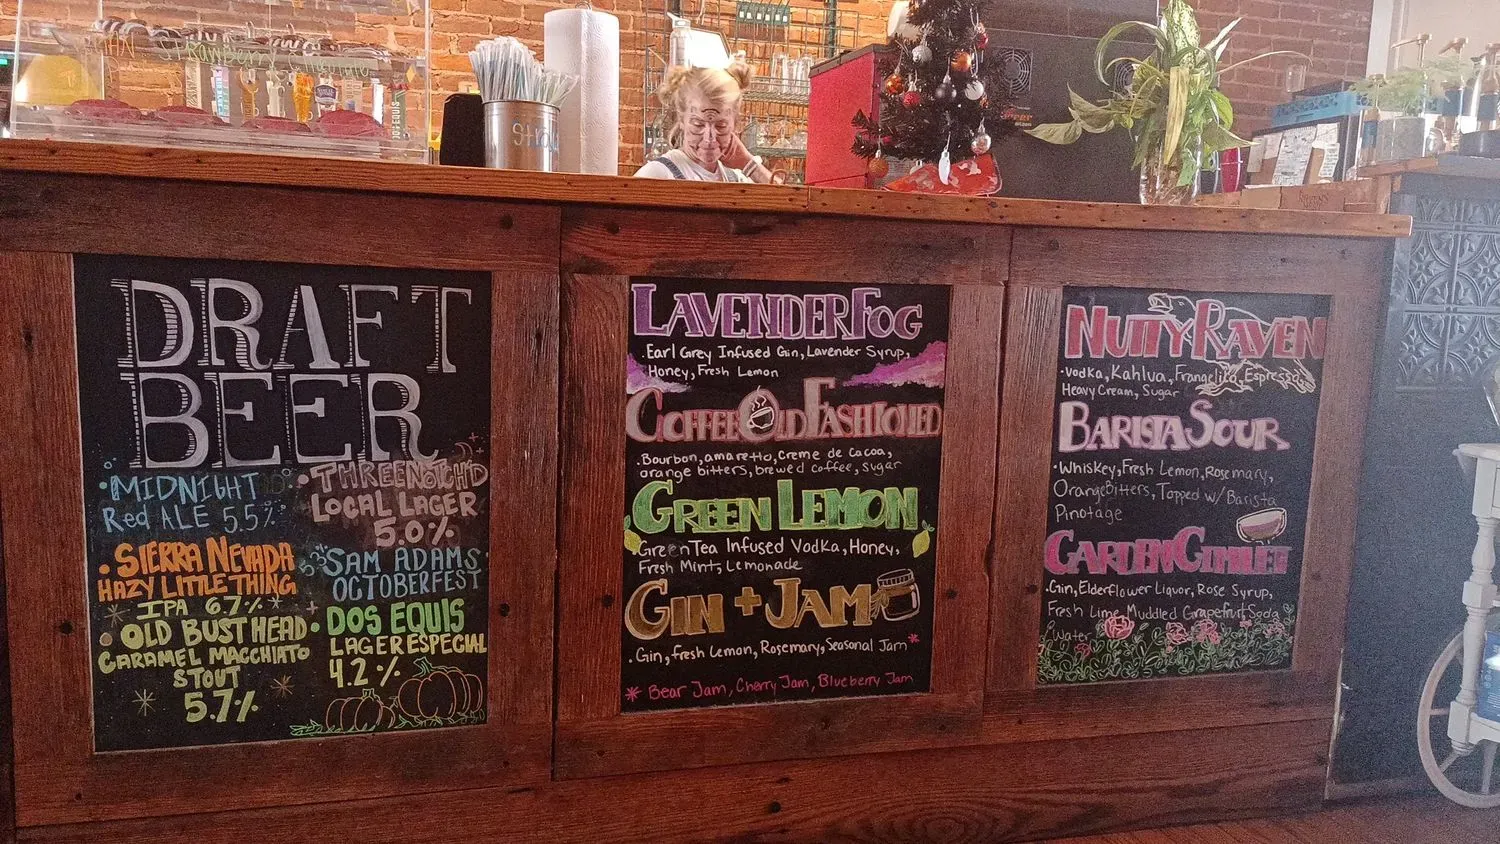 Strawberry Tomato
Straws
DOS EQUIS
DRAFT
BEER
• MIDNIGHT
Red ALE 5.5%
• SIERRA NEVADA
HAZY LITTLE THING
IPA 6.7%
• OLD BUSTHEAD
CARAMEL MACCHIATO
STOUT
5.7%
• THREE NOTCH'D
LOCAL LAGER
5.0%
• SAM ADAMS
OCTOBERFEST
• DOS EQUIS
LAGER ESPECIAL
4.2%
LAVENDER FOG
• Earl Grey Infused Gin, Lavender Syrup,
Honey, Fresh Lemon
COFFEE OLD FASHIONED
• Bourbon, amaretto, creme de cacoa,
orange bitters, brewed coffee, sugar
GREEN LEMON
• Green Tea Infused Vodka, Honey,
Fresh Mint, Lemonade
GIN + JAM
• Gin, fresh Lemon, Rosemary, Seasonal Jam *
* Bear Jam, Cherry Jam, Blueberry Jam
NUTTY RAVEN
• Vodka, Kahlua, Frangelico, Espresso,
Heavy Cream, Sugar
BARISTA SOUR
• Whiskey, Fresh Lemon, Rosemary,
Orange Bitters, Topped w/ Barista
Pinotage
GARDEN GIMLET
• Gin, Elderflower Liquor, Rose Syrup,
Fresh Lime, Muddled Grapefruit, Soda
Water